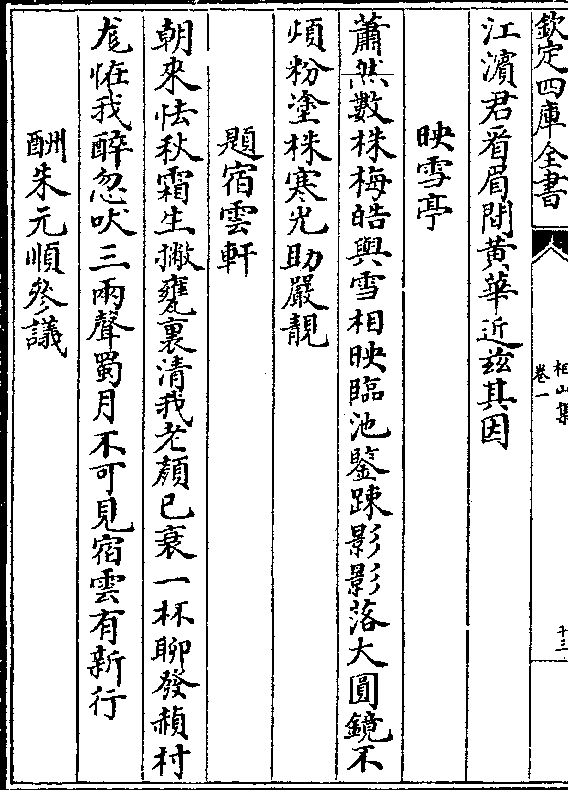 欽定四庫全書
相山集
卷一
十三
江濱君看眉間黃華近兹其因
映雪亭
蕭然數株梅皓與雪相映臨池鑒踈影影落大圓鏡不
煩粉塗林寒光助嚴靚
題宿雲軒
朝來怯秋霜生撇甕裏清我老顔已衰一杯聊發赬村
尨怪我醉忽吠三兩聲蜀月不可見宿雲有新行
酬朱元順叅議